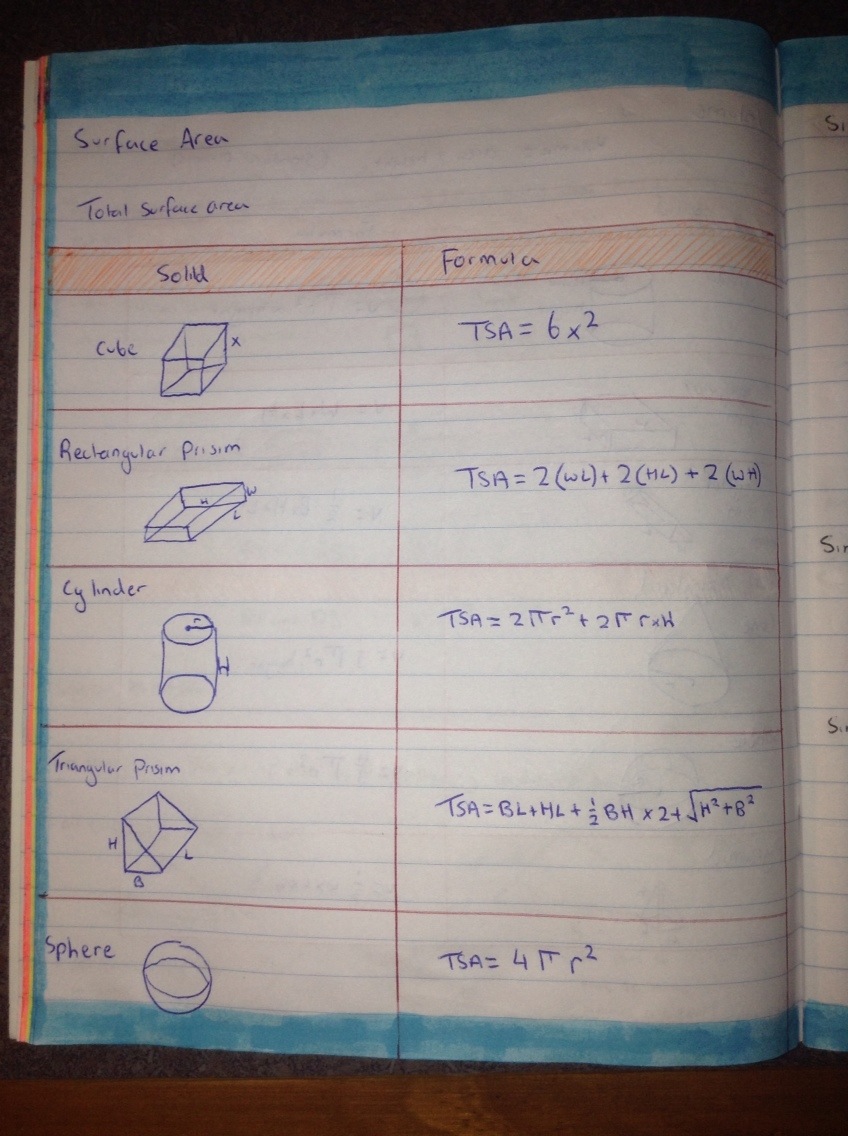 Surface Area
Total surface area
Solid
Formula
Cube
x
TSA = 6x²
Rectangular Prisim
W
H
L
TSA = 2(WL) + 2(HL) + 2(WH)
Cylinder
r
H
TSA = 2πr² + 2πr×H
Triangular Prisim
H
L
B
TSA = BL + HL + ½BH × 2 + √H² + B²
Sphere
TSA = 4πr²
Si
Sin
Si